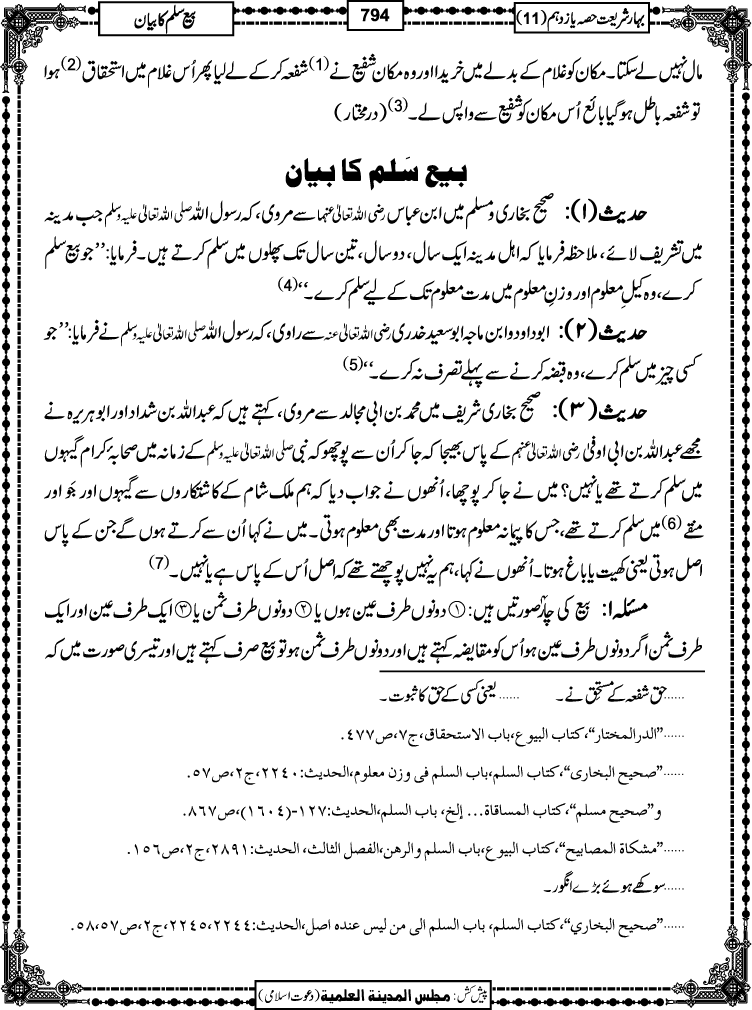 بہارِ شریعت حصہ یازدہم (11)
794
بیع سلم کا بیان
مال نہیں لے سکتا۔ مکان کو غلام کے بدلے میں خریدا اور وہ مکان شفیع نے (1) شفعہ کر کے لے لیا پھر اُس غلام میں استحقاق (2) ہوا
تو شفعہ باطل ہو گیا بائع اُس مکان کو شفیع سے واپس لے۔ (3) (درمختار)
بیع سَلم کا بیان
حدیث (۱): صحیح بخاری و مسلم میں ابن عباس رضی اللہ تعالیٰ عنہما سے مروی، کہ رسول اللہ صلی اللہ تعالیٰ علیہ وسلم جب مدینہ
میں تشریف لائے، ملاحظہ فرمایا کہ اہل مدینہ ایک سال، دو سال، تین سال تک پھلوں میں سلم کرتے ہیں۔ فرمایا: ’’جو بیع سلم
کرے، وہ کیلِ معلوم اور وزنِ معلوم میں مدت معلوم تک کے لیے سلم کرے۔‘‘ (4)
حدیث (۲): ابوداود و ابن ماجہ ابوسعید خدری رضی اللہ تعالیٰ عنہ سے راوی، کہ رسول اللہ صلی اللہ تعالیٰ علیہ وسلم نے فرمایا: ’’جو
کسی چیز میں سلم کرے، وہ قبضہ کرنے سے پہلے تصرف نہ کرے۔‘‘ (5)
حدیث (۳): صحیح بخاری شریف میں محمد بن ابی مجالد سے مروی، کہتے ہیں کہ عبداللہ بن شداد اور ابوہریرہ نے
مجھے عبداللہ بن ابی اوفیٰ رضی اللہ تعالیٰ عنہم کے پاس بھیجا کہ جا کر اُن سے پوچھو کہ نبی صلی اللہ تعالیٰ علیہ وسلم کے زمانہ میں صحابۂ کرام گیہوں
میں سلم کرتے تھے یا نہیں؟ میں نے جا کر پوچھا، اُنھوں نے جواب دیا کہ ہم ملک شام کے کاشتکاروں سے گیہوں اور جَو اور
منقے (6) میں سلم کرتے تھے، جس کا پیمانہ معلوم ہوتا اور مدت بھی معلوم ہوتی۔ میں نے کہا اُن سے کرتے ہوں گے جن کے پاس
اصل ہوتی یعنی کھیت یا باغ ہوتا۔ اُنھوں نے کہا، ہم یہ نہیں پوچھتے تھے کہ اصل اُس کے پاس ہے یا نہیں۔ (7)
مسئلہ ۱: بیع کی چار صورتیں ہیں: ① دونوں طرف عین ہوں یا ② دونوں طرف ثمن یا ③ ایک طرف عین اور ایک
طرف ثمن اگر دونوں طرف عین ہو اُس کو مقایضہ کہتے ہیں اور دونوں طرف ثمن ہو تو بیع صرف کہتے ہیں اور تیسری صورت میں کہ
......حق شفعہ کے مستحق نے۔ ......یعنی کسی کے حق کا ثبوت۔
......”الدرالمختار“، کتاب البیوع، باب الاستحقاق، ج۷، ص۴۷۷.
......”صحیح البخاری“، کتاب السلم، باب السلم فی وزن معلوم، الحدیث: ۲۲۴۰، ج۲، ص۵۷.
و”صحیح مسلم“، کتاب المساقاة... إلخ، باب السلم، الحدیث: ۱۲۷-(۱۶۰۴)، ص۸۶۷.
......”مشکاة المصابیح“، کتاب البیوع، باب السلم والرهن، الفصل الثالث، الحدیث: ۲۸۹۱، ج۲، ص۱۵۶.
......سوکھے ہوئے بڑے انگور۔
......”صحیح البخاري“، کتاب السلم، باب السلم الی من لیس عنده اصل، الحدیث: ۲۲۴۴، ۲۲۴۵، ج۲، ص۵۷، ۵۸.
پیش کش: مجلس المدینة العلمیة (دعوت اسلامی)